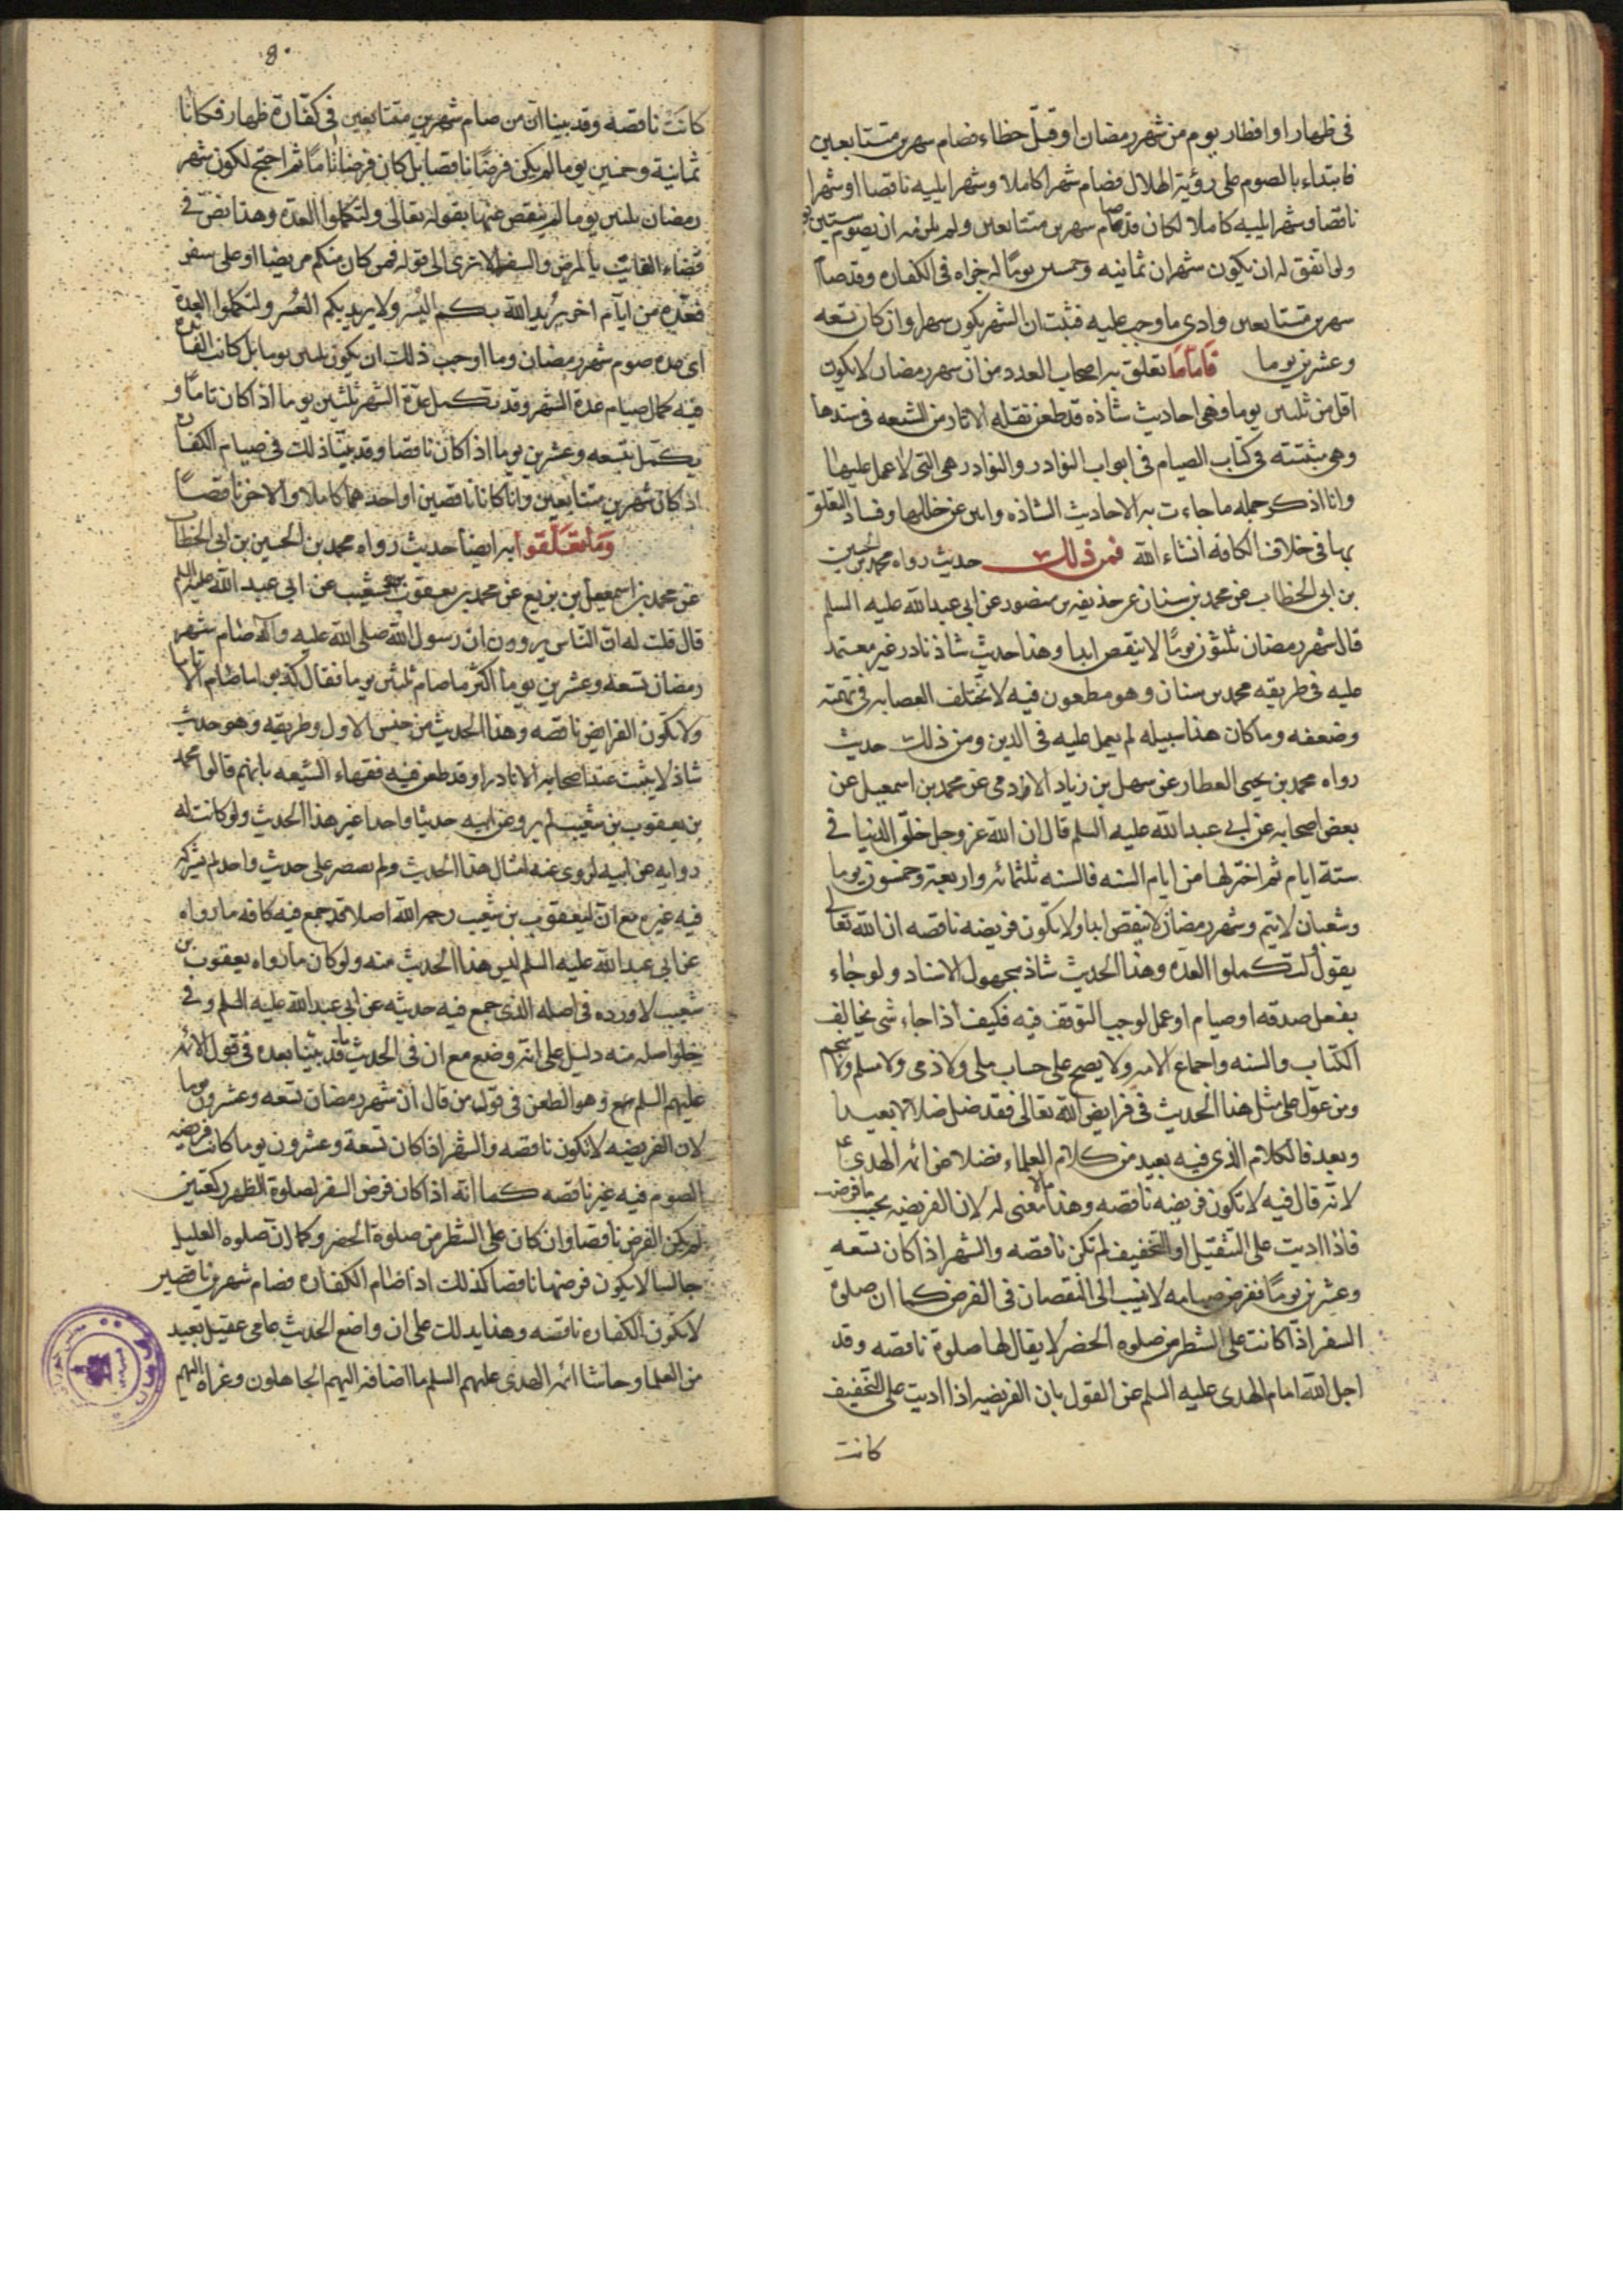 فى ظهار او افطار يوم من شهر رمضان او قتل خطاء فصام شهرين متتابعين
فابتداء بالصوم على رؤية الهلال فصام شهرا كاملا وشهرا يليه ناقصا او شهرا
ناقصا وشهرا يليه كاملا لكان قد صام شهرين متتابعين ولم يلزمه ان يصوم ستين يو
ولما تفق له ان يكون شهران ثمانيه وخمسين يومًا لم جزاه فى الكفاره وقد صاما
شهرين متتابعين وادى ما وجب عليه فثبت ان الشهر يكون شهرا وان كان تسعه
وعشرين يوما فاما ما تعلق به اصحاب العدد من ان شهر رمضان لا يكون
اقل من ثلثين يوما فهى احاديث شاذه قد طعن نقله الاثار من الشيعه فى سندها
وهى مثبتة فى كتاب الصيام فى ابواب النوادر والنوادر هى التى لا عمل عليها
وانا اذكر جمله ما جاءت به الاحاديث الشاذه وابين عن خللها وفساد التعلق
بها فى خلاف الكافه انشاء الله فمن ذلك حديث رواه محمد بن الحسين
بن ابى الخطاب عن محمد بن سنان عن حذيفه بن منصور عن ابى عبد الله عليه السلم
قال شهر رمضان ثلثون يومًا لا ينقص ابدا وهذا حديث شاذ نادر غير معتمد
عليه فى طريقه محمد بن سنان وهو مطعون فيه لا تختلف العصابه فى تهمته
وضعفه وما كان هذا سبيله لم يعمل عليه فى الدين ومن ذلك حديث
رواه محمد بن يحيى العطار عن سهل بن زياد الادمى عن محمد بن اسمعيل عن
بعض اصحابه عن ابى عبد الله عليه السلم قال ان الله عز وجل خلق الدنيا فى
ستة ايام ثم اختزلها من ايام السنه فالسنه ثلثمائه واربعة وخمسون يوما
وشعبان لا يتم وشهر رمضان لا ينقص ابدا ولا تكون فريضه ناقصه ان الله تعالى
يقول لتكملوا العده وهذا الحديث شاذ مجهول الاسناد ولو جاء
بفعل صدقه او صيام او عمل لوجب التوقف فيه فكيف اذا جاء شى يخالف
الكتاب والسنه واجماع الامه ولا يصح على حساب ملى ولا ذمى ولا مسلم ولا منجم
ومن عوّل على مثل هذا الحديث فى فرايض الله تعالى فقد ضل ضلالا بعيدا
وبعد فالكلام الذى فيه بعيد من كلام العلماء فضلا عن ائمه الهدى ع
لانه قال فيه لا تكون فريضه ناقصه وهذا ما لا معنى له لان الفريضه بحسب ما فرضت
فاذا اديت على التثقيل او التخفيف لم تكن ناقصه والشهر اذا كان تسعه
وعشرين يومًا ففرض صيامه لا ينسب الى النقصان فى الفرض كما ان صلوة
السفر اذا كانت على الشطر من صلوه الحضر لا يقال لها صلوة ناقصه وقد
اجل الله امام الهدى عليه السلم عن القول بان الفريضه اذا اديت على التخفيف
كانت
8
كانت ناقصه وقد بينا ان من صام شهرين متتابعين فى كفارة ظهار فكانا
ثمانية وخمسين يوما لم يكن فرضًا ناقصا بل كان فرضا تامًا ثم احتج لكون شهر
رمضان ثلثين يوما لم ينقص عنها بقوله تعالى ولتكملوا العده وهذا نص فى
قضاء الفايت بالمرض والسفر الا ترى الى قوله فمن كان منكم مريضا او على سفر
فعدة من ايام اخر يريد الله بكم اليسر ولا يريد بكم العسر ولتكملوا العدة
اى عده صوم شهر رمضان وما اوجب ذلك ان يكون ثلثين يوما بل كانت الفائده
فيه كمال صيام عدة الشهر وقد تكمل عدّة الشهر ثلثين يوما اذا كان تامًا و
يكمل بتسعه وعشرين يوما اذا كان ناقصا وقد بيّنا ذلك فى صيام الكفاره
اذ كان شهرين متتابعين وان كانا ناقصين او احدهما كاملا والاخر ناقصًا
ومما تعلقوا به ايضا حديث رواه محمد بن الحسين بن ابى الخطاب
عن محمد بن اسمعيل بن بزيع عن محمد بن يعقوب بن شعيب عن ابى عبد الله عليه السلم
قال قلت له ان الناس يروون ان رسول الله صلى الله عليه وآله صام شهر
رمضان تسعه وعشرين يوما اكثر ما صام ثلثين يوما فقال كذبوا ما صام الا تاما
ولا تكون الفرايض ناقصه وهذا الحديث من جنس الاول وطريقه وهو حديث
شاذ لا يثبت عند اصحاب الاثار وقد طعن فيه فقهاء الشيعه بانهم قالوا محمد
بن يعقوب بن شعيب لم يرو عن ابيه حديثا واحدا غير هذا الحديث ولو كانت له
روايه عن ابيه لروى عنه امثال هذا الحديث ولم يقتصر على حديث واحد لم يشركه
فيه غيره مع ان ليعقوب بن شعيب رحمه الله اصلا قد جمع فيه كافه ما رواه
عن ابى عبد الله عليه السلم ليس هذا الحديث منه ولو كان ما رواه يعقوب بن
شعيب لاورده فى اصله الذى جمع فيه حديثه عن ابى عبد الله عليه السلم وفى
خلو اصله منه دليل على انه وضع مع ان فى الحديث ما قد بيّنا بعده فى قول الائمه
عليهم السلم وهو الطعن فى قول من قال ان شهر رمضان تسعه وعشرون يوما
لان الفريضه لا تكون ناقصه والشهر اذا كان تسعة وعشرون يوما كانت فريضه
الصوم فيه غير ناقصه كما انه اذا كان فرض السفر لصلوة الظهر ركعتين
لم يكن الفرض ناقصا وان كان على الشطر من صلوة الحضر وكما ان صلوه العليل
جالسا لا يكون فرضها ناقصا كذلك اذا صام الكفاره فصام شهرين ناقصين
لا تكون الكفاره ناقصه وهذا يدلك على ان واضع الحديث عامى عقيل بعيد
من العلما وحاشا ائمه الهدى عليهم السلم مما اضافه اليهم الجاهلون وعزاه اليهم